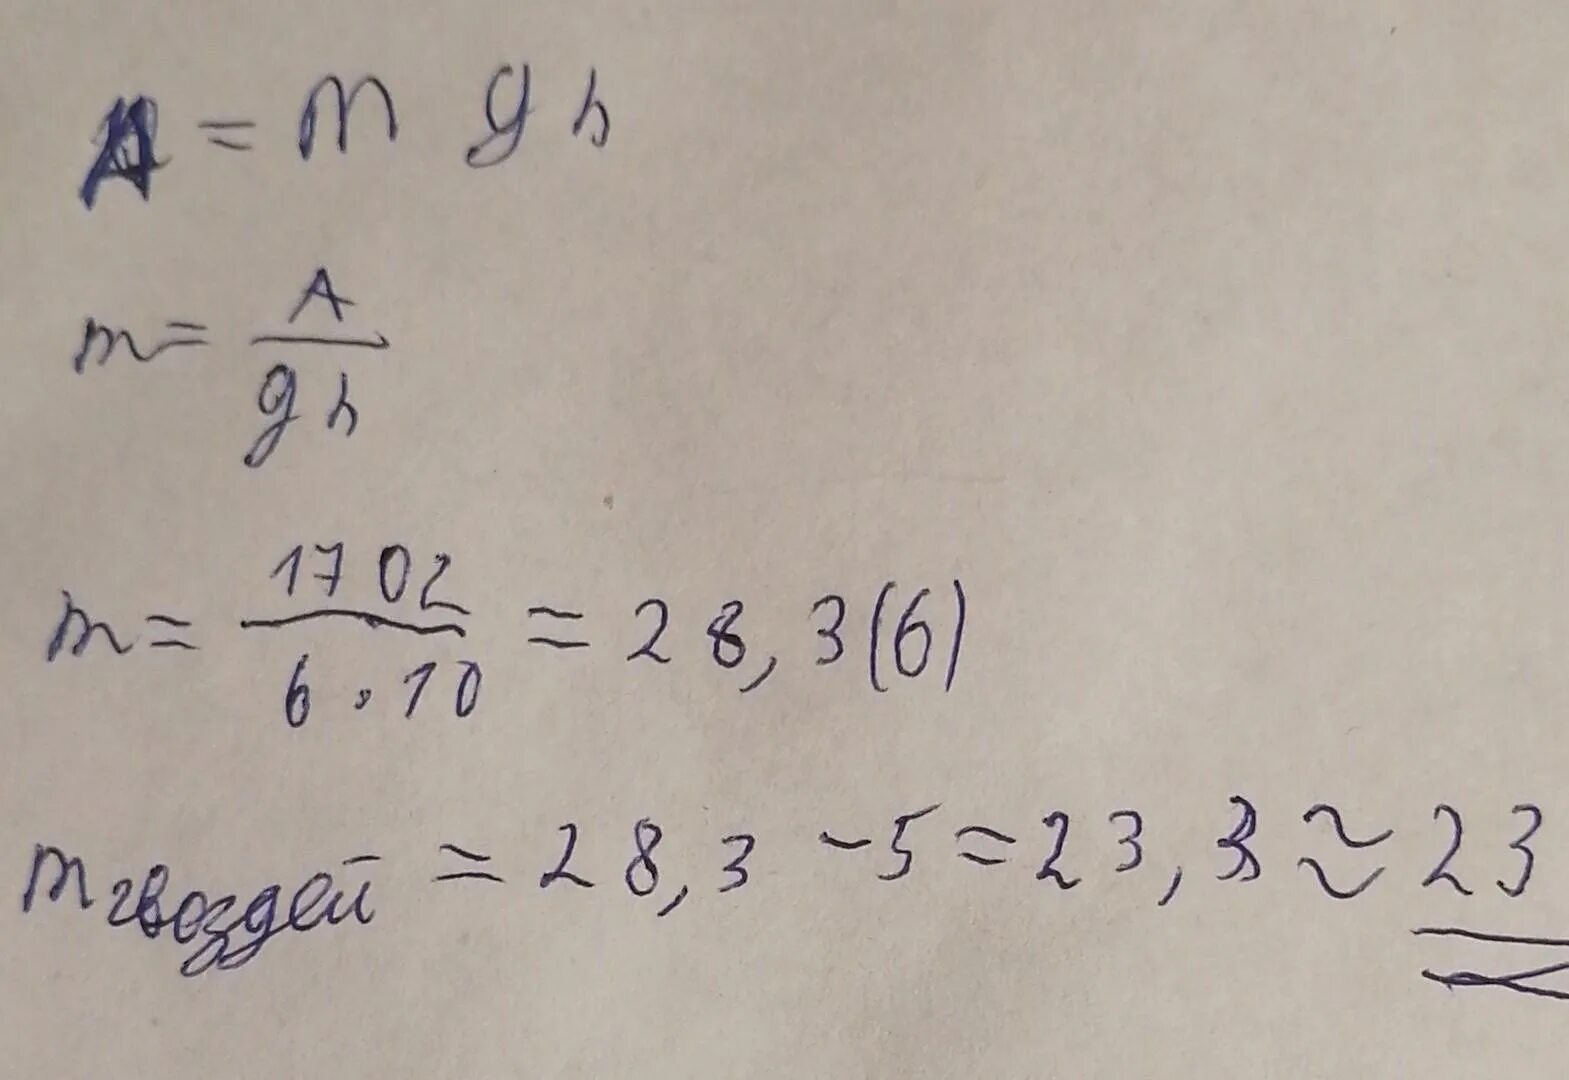 A = m g h
m = A / g h
m = 1702 / 6 · 10 = 28,3(6)
m гвоздей = 28,3 - 5 = 23,3 ≈ 23